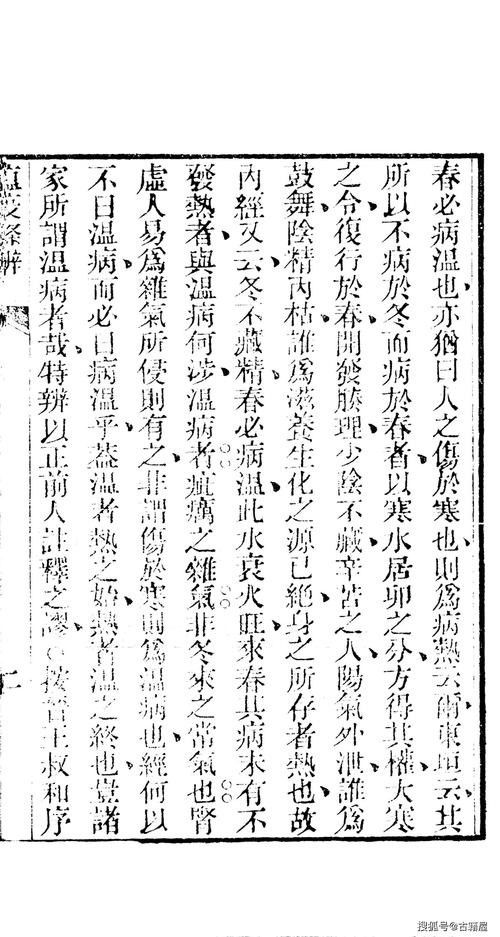 春必病溫也亦猶曰人之傷於寒也則爲病熱云爾東垣云其
所以不病於冬而病於春者以寒水居卯之分方得其權大寒
之令復行於春開發腠理少陰不藏辛苦之人陽氣外泄誰爲
鼓舞陰精內枯誰爲滋養生化之源已絕身之所存者熱也故
內經又云冬不藏精春必病溫此水衰火旺來春其病未有不
發熱者與溫病何涉溫病者疵癘之雜氣非冬來之常氣也腎
虛人易爲雜氣所侵則有之非謂傷於寒則爲溫病也經何以
不曰溫病而必曰病溫乎蓋溫者熱之始熱者溫之終也豈諸
家所謂溫病者哉特辨以正前人註釋之謬○按晉王叔和序
條辨
二
搜狐号@古籍屋